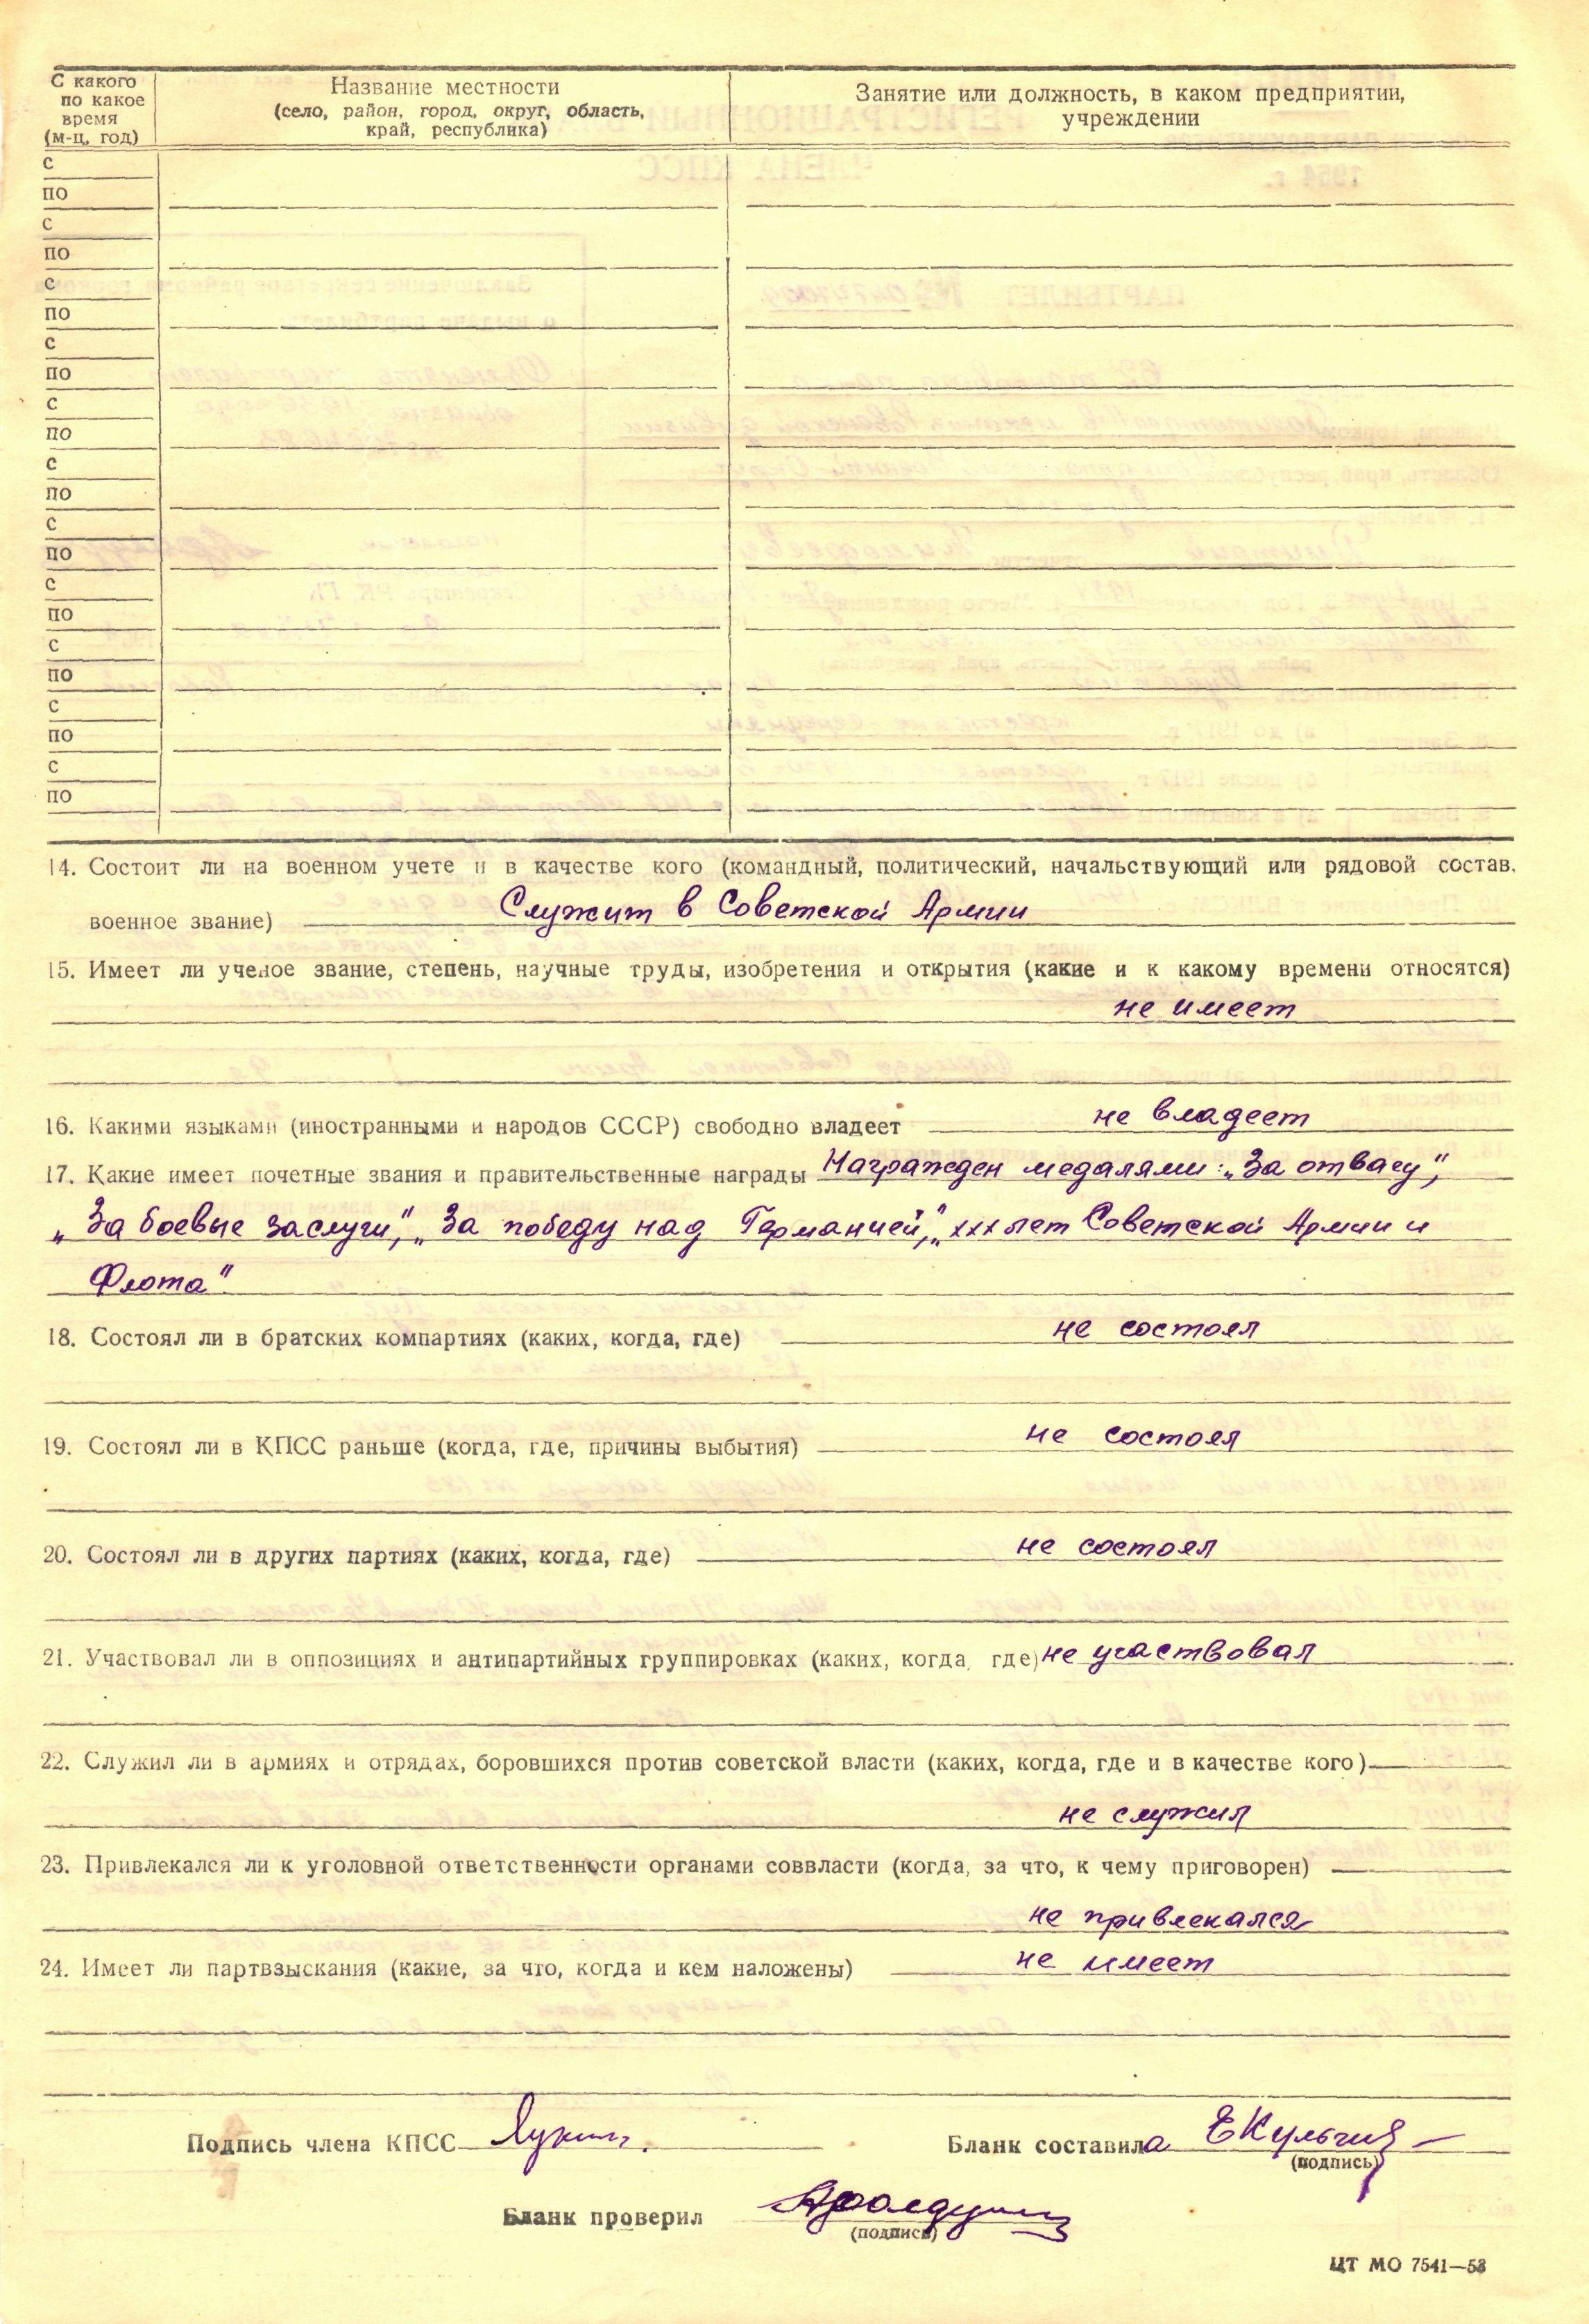 С какого
по какое
время
(м-ц, год)
Название местности
(село, район, город, округ, область,
край, республика)
Занятие или должность, в каком предприятии,
учреждении
с
по
с
по
с
по
с
по
с
по
с
по
с
по
с
по
с
по
с
по
с
по
14. Состоит ли на военном учете и в качестве кого (командный, политический, начальствующий или рядовой состав,
военное звание) Служит в Советской Армии
15. Имеет ли ученое звание, степень, научные труды, изобретения и открытия (какие и к какому времени относятся)
не имеет
16. Какими языками (иностранными и народов СССР) свободно владеет не владеет
17. Какие имеет почетные звания и правительственные награды Награжден медалями: „За отвагу",
„За боевые заслуги", „За победу над Германией", „ххх лет Советской Армии и
Флота"
18. Состоял ли в братских компартиях (каких, когда, где) не состоял
19. Состоял ли в КПСС раньше (когда, где, причины выбытия) не состоял
20. Состоял ли в других партиях (каких, когда, где) не состоял
21. Участвовал ли в оппозициях и антипартийных группировках (каких, когда, где) не участвовал
22. Служил ли в армиях и отрядах, боровшихся против советской власти (каких, когда, где и в качестве кого)
не служил
23. Привлекался ли к уголовной ответственности органами соввласти (когда, за что, к чему приговорен)
не привлекался
24. Имеет ли партвзыскания (какие, за что, когда и кем наложены) не имеет
Подпись члена КПСС
Бланк составила
(подпись)
Бланк проверил
(подпись)
ЦТ МО 7541—53